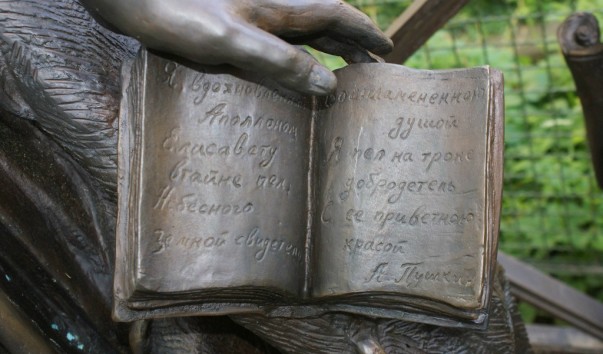 Я, вдохновенный
Аполлоном
Елисавету
втайне пел,
Небесного
земной свидетель,
Воспламененною
душой
Я пел на троне
добродетель
С ее приветною
красой
А. Пушкин